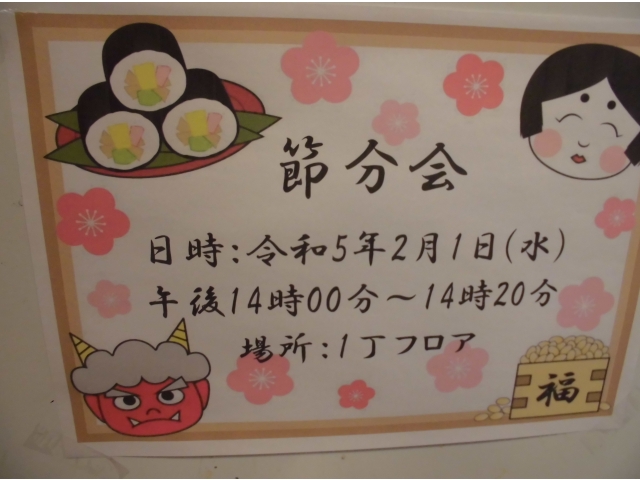 節分会
日時:令和5年2月1日(水)
午後14時00分～14時20分
場所:1丁フロア
福